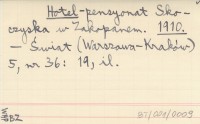 Hotel-pensyonat Sko-
czyska w Zakopanem. 1910.
— Świat (Warszawa-Kraków)
5, nr 36: 19, il.
BZ
BT/001/0009